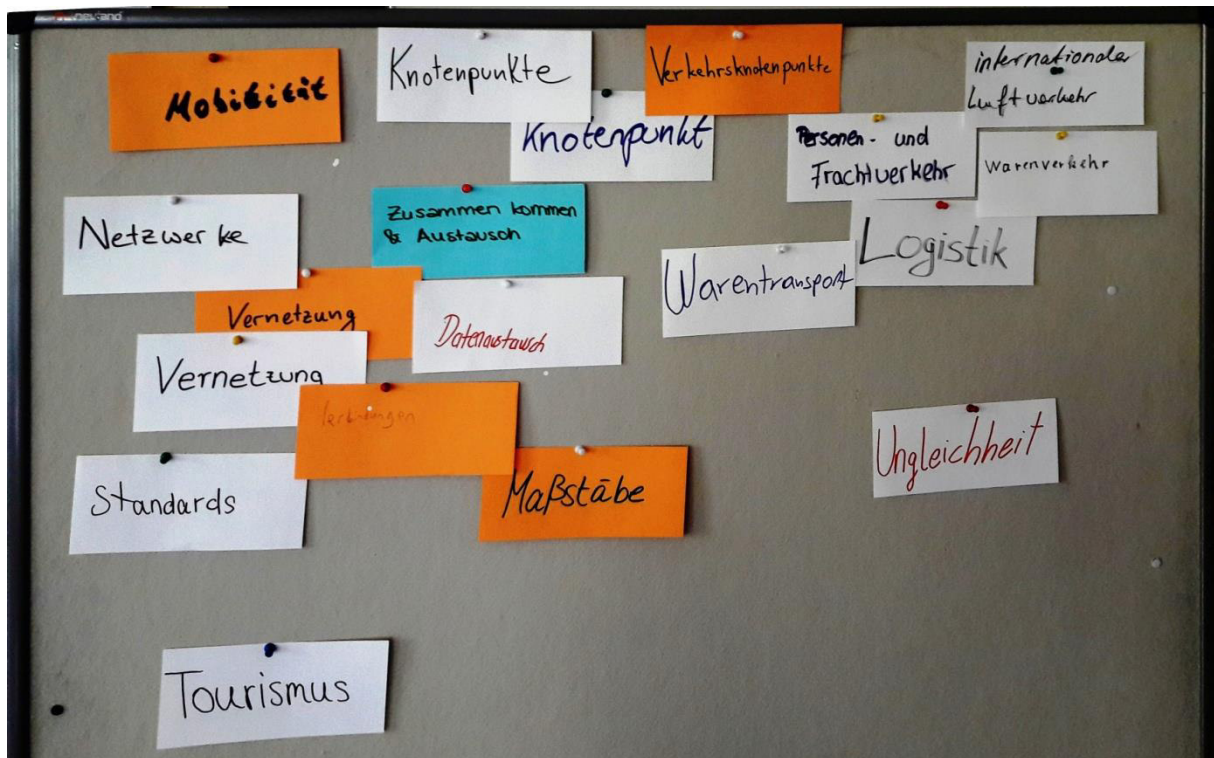 Mobilität
Knotenpunkte
Verkehrsknotenpunkte
internationaler
Luftverkehr
Knotenpunkt
Personen- und
Frachtverkehr
Warenverkehr
Netzwerke
Zusammen kommen
& Austausch
Logistik
Warentransport
Vernetzung
Datenaustausch
Vernetzung
Ungleichheit
Standards
Maßstäbe
Tourismus